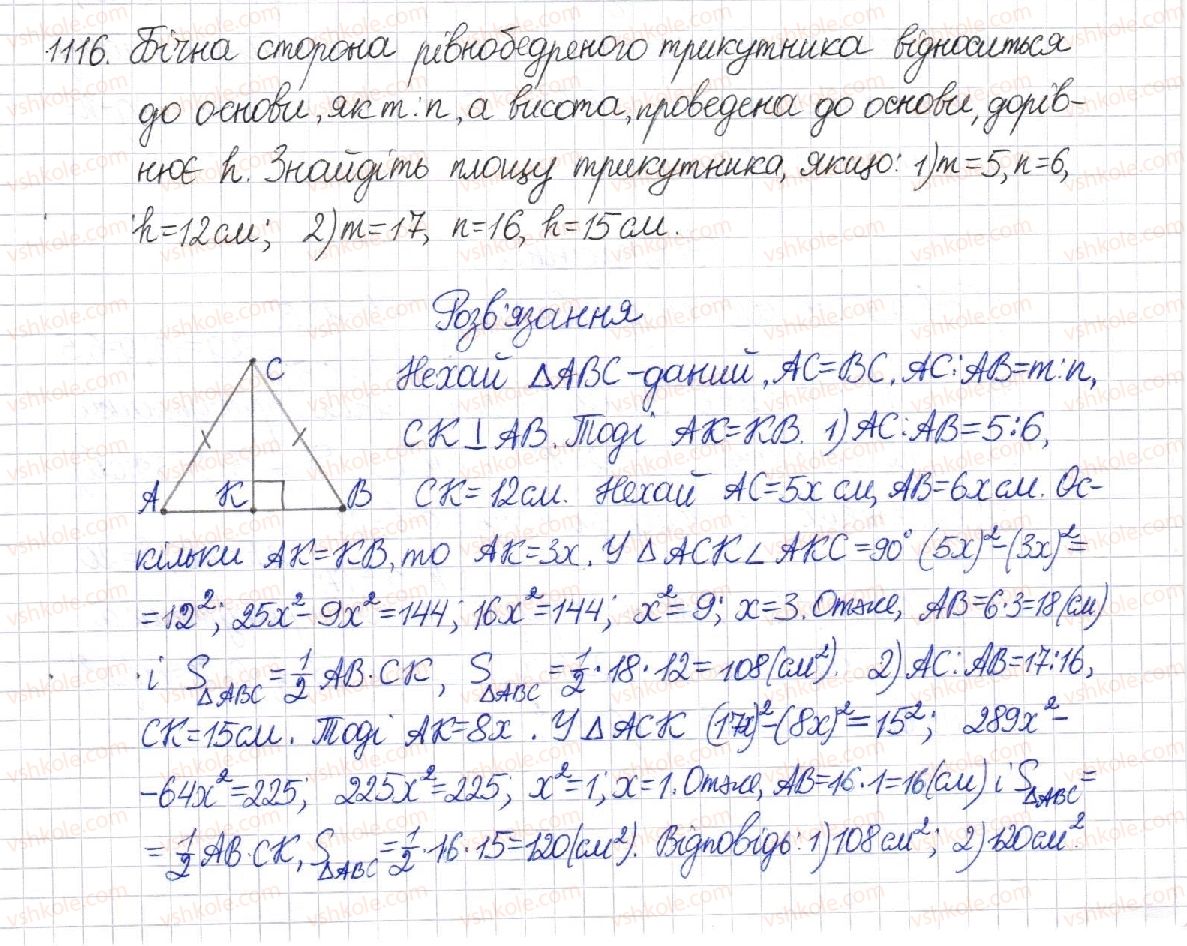 1116. Бічна сторона рівнобедреного трикутника відноситься
до основи, як m:n, а висота, проведена до основи, дорів-
нює h. Знайдіть площу трикутника, якщо: 1) m=5, n=6,
h=12 см; 2) m=17, n=16, h=15 см.
Розв'язання
C
A K B
Нехай △ABC – даний, AC=BC, AC:AB=m:n,
CK⊥AB. Тоді AK=KB. 1) AC:AB=5:6,
CK=12 см. Нехай AC=5x см, AB=6x см. Ос-
кільки AK=KB, то AK=3x. У △ACK ∠AKC=90° (5x)²-(3x)²=
=12²; 25x²-9x²=144; 16x²=144; x²=9; x=3. Отже, AB=6·3=18(см)
і S△ABC=1/2 AB·CK, S△ABC=1/2·18·12=108(см²). 2) AC:AB=17:16,
CK=15 см. Тоді AK=8x. У △ACK (17x)²-(8x)²=15²; 289x²-
-64x²=225; 225x²=225; x²=1; x=1. Отже, AB=16·1=16(см) і S△ABC=
=1/2 AB·CK, S△ABC=1/2·16·15=120(см²). Відповідь: 1) 108 см²; 2) 120 см².
vshkole.com